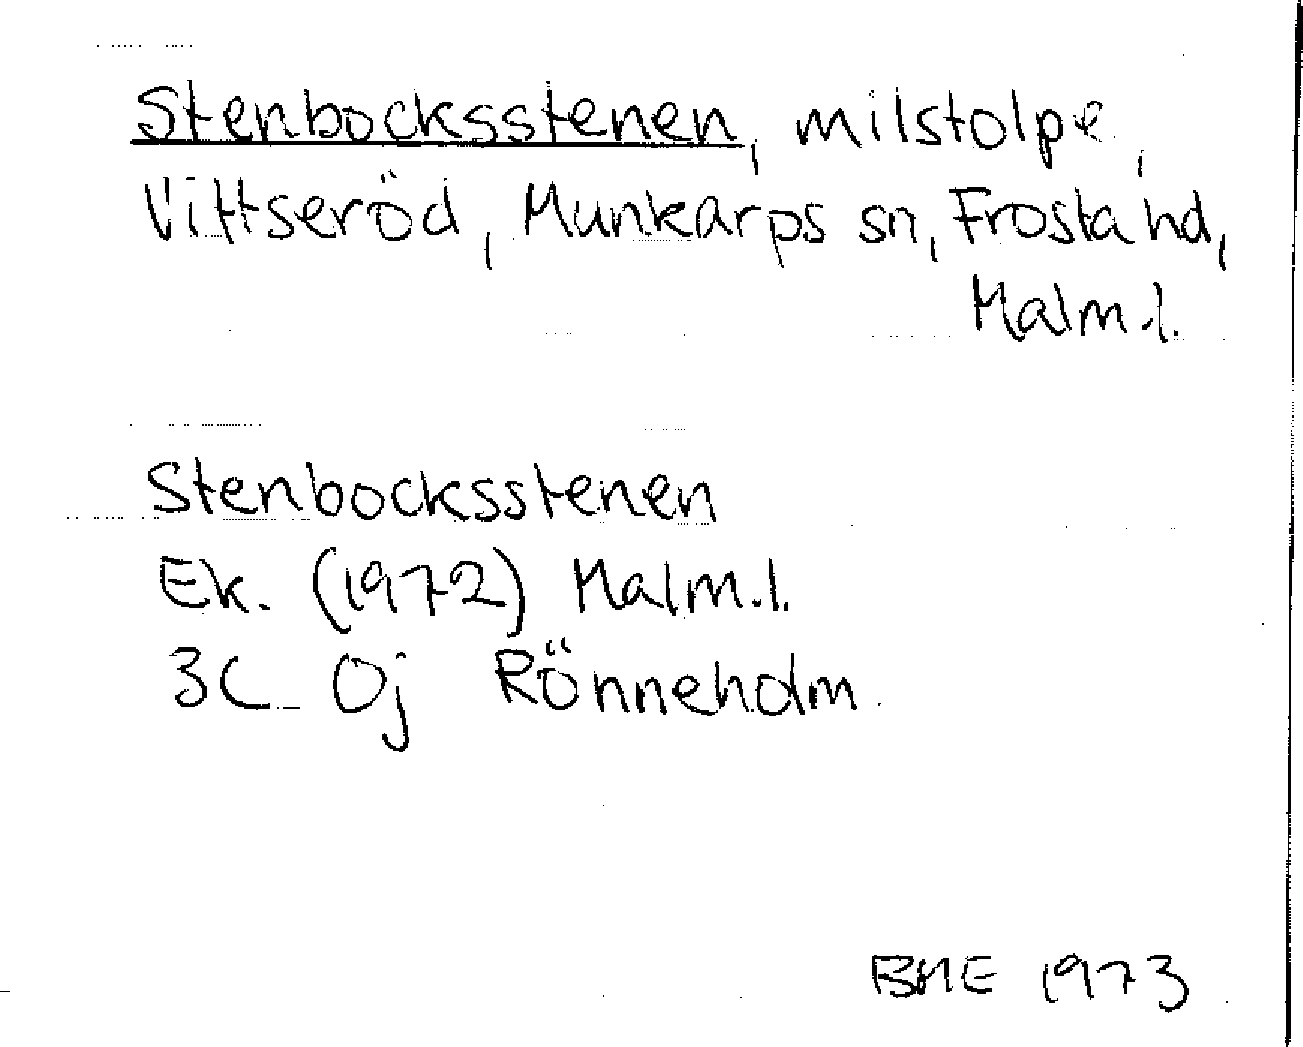 Stenbocksstenen, milstolpe,
Vittseröd, Munkarps sn, Frosta hd,
Malm.l.
Stenbocksstenen
Ek. (1972) Malm.l.
3C 0j Rönneholm
BME 1973